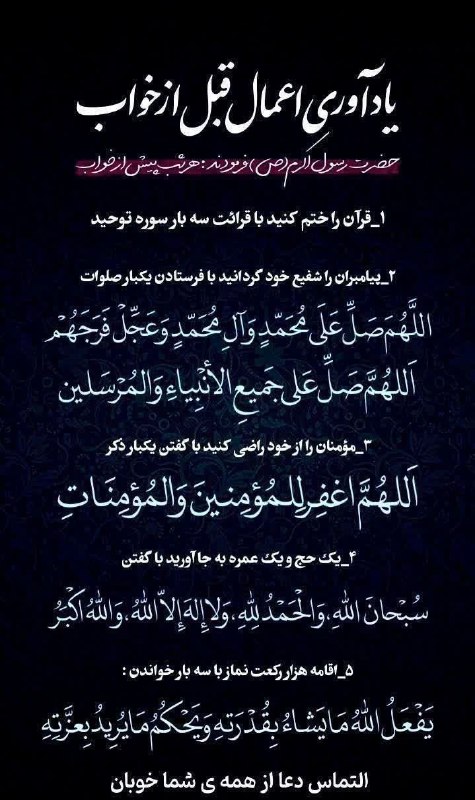 یادآوری اعمال قبل از خواب
حضرت رسول اکرم (ص) فرمودند : هر شب پیش از خواب
۱_قرآن را ختم کنید با قرائت سه بار سوره توحید
۲_پیامبران را شفیع خود گردانید با فرستادن یکبار صلوات
اللَّهُمَّ صَلِّ عَلَى مُحَمَّدٍ وَآلِ مُحَمَّدٍ وَعَجِّلْ فَرَجَهُمْ
اَللهُمَّ صَلِّ عَلى جَمیعِ الأنْبِیاءِ وَالمُرْسَلین
۳_مؤمنان را از خود راضی کنید با گفتن یکبار ذکر
اَللهُمَّ اغْفِر لِلمُؤمِنینَ وَالمُؤمِنَاتِ
۴_یک حج و یک عمره به جا آورید با گفتن
سُبْحانَ اللهِ، وَالْحَمْدُ لِلّهِ، وَلا إلهَ إلاّ اللهُ، وَاللهُ اکْبَرُ
۵_اقامه هزار رکعت نماز با سه بار خواندن :
یَفْعَلُ اللهُ مَا یَشاءُ بِقُدْرَتِهِ وَیَحْکُمُ مَا یُرِیدُ بِعِزَّتِهِ
التماس دعا از همه ی شما خوبان